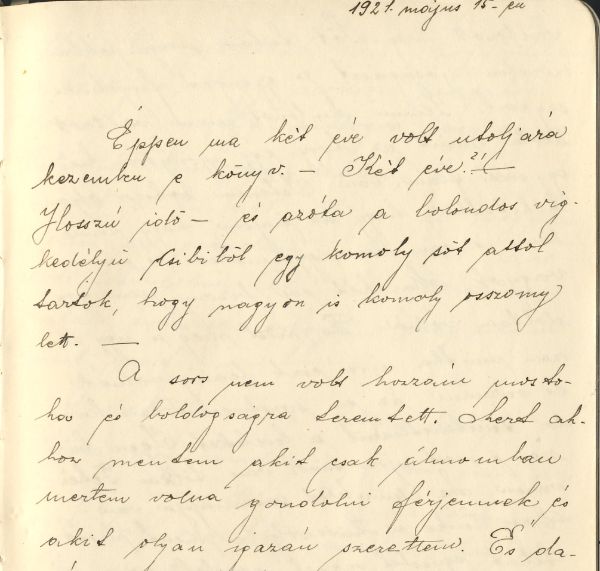 1921. május 15-én
Éppen ma két éve volt utoljára
kezemben e könyv. – Két éve?! —
Hosszú idő – és azóta a bolondos víg-
kedélyű Csibiből egy komoly sőt attol
tartok, hogy nagyon is komoly asszony
lett. —
A sors nem volt hozzám mosto-
ha és boldogságra teremtett. Mert ah-
hoz mentem akit csak álmomban
mertem volna gondolni férjemnek és
akit olyan igazán szerettem. És da-